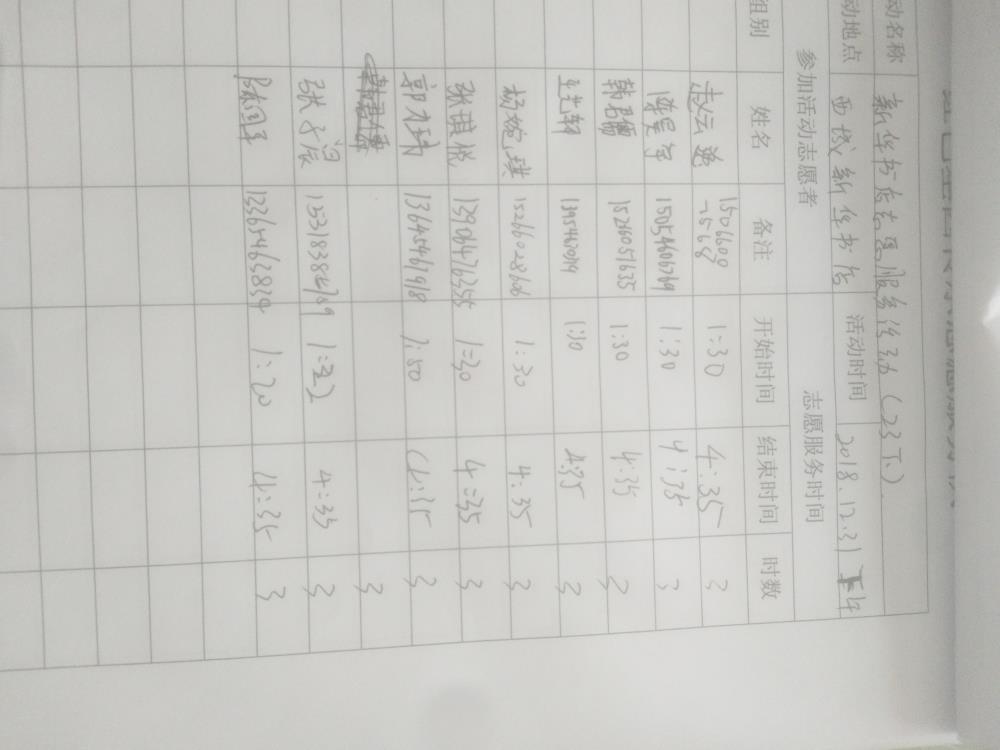 动名称 新华书店志愿服务活动(23下)
动地点 西城新华书店 活动时间 2018.12.31 下午
参加活动志愿者 志愿服务时间
组别 姓名 备注 开始时间 结束时间 时数
1506600 1:30 4:35 3
15054606769 1:30 4:35 3
韩 15266051635 1:30 4:35 3
1395467019 1:30 4:35 3
杨婉琪 15266028606 1:30 4:35 3
张祺悦 13906476355 1:30 4:35 3
郭九琦 13645461918 1:50 4:35 3
3
张子涵 4:35 3
1:20 4:35 3